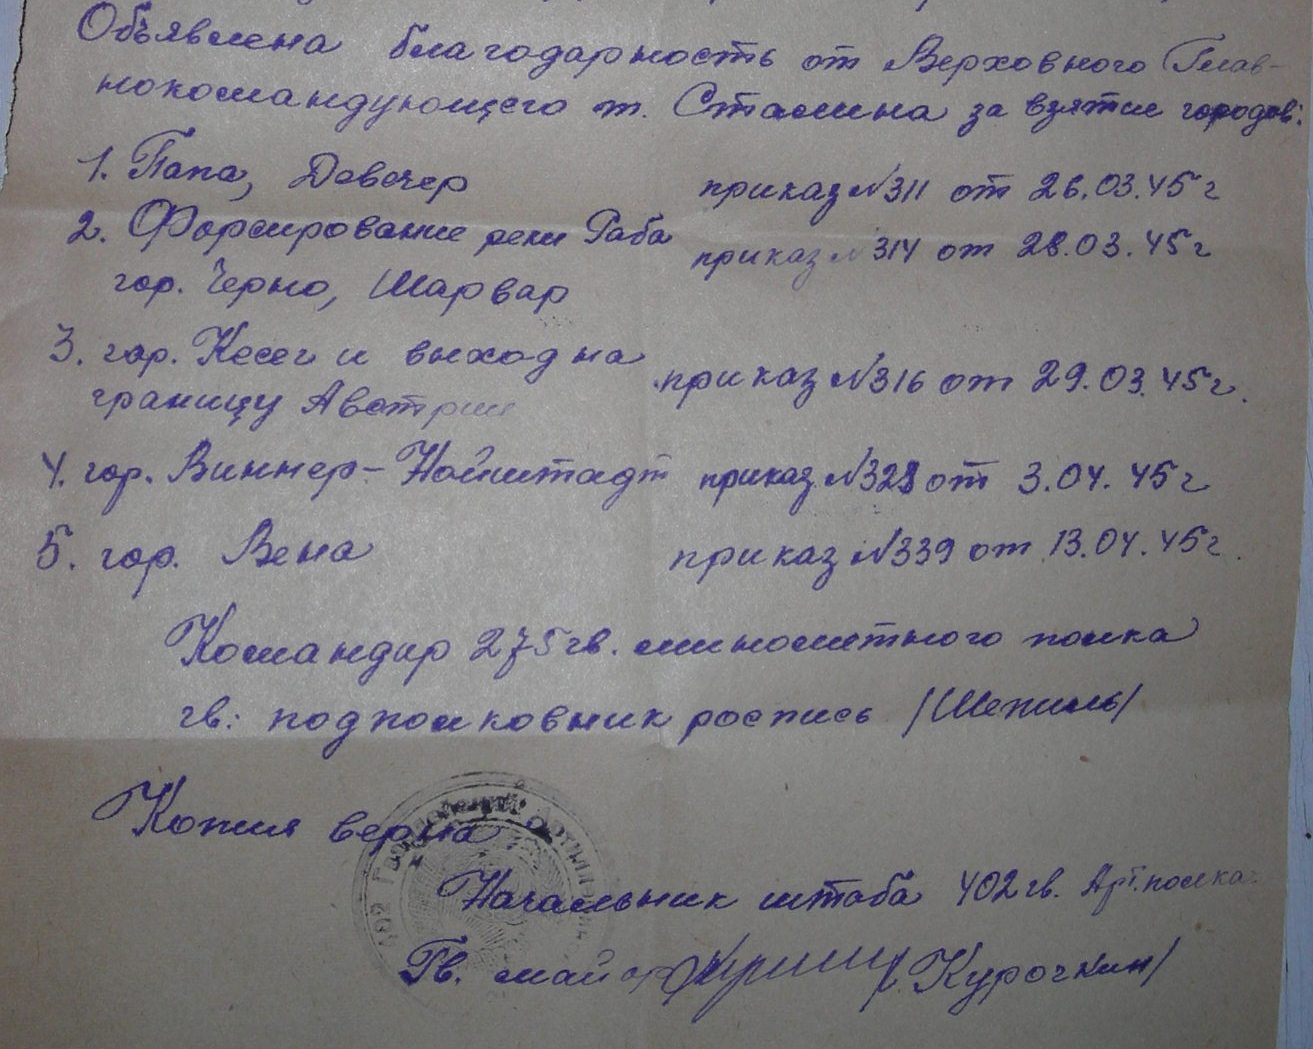 Объявлена благодарность от Верховного Глав-
нокомандующего т. Сталина за взятие городов:
1. Папа, Девечер приказ №311 от 26.03.45г
2. Форсирование реки Раба приказ №314 от 28.03.45г
гор. Черно, Шарвар
3. гор. Кесег и выход на
границу Австрии приказ №316 от 29.03.45г.
4. гор. Виннер-Нойштадт приказ №328 от 3.04.45г
5. гор. Вена приказ №339 от 13.04.45г.
Командир 275 гв. минометного полка
гв: подполковник роспись /Шепиль/
Копия верна
Начальник штаба 402 гв. Арт. полка
Гв. майор /Курочкин/
402 Гвардейский Артиллерийский